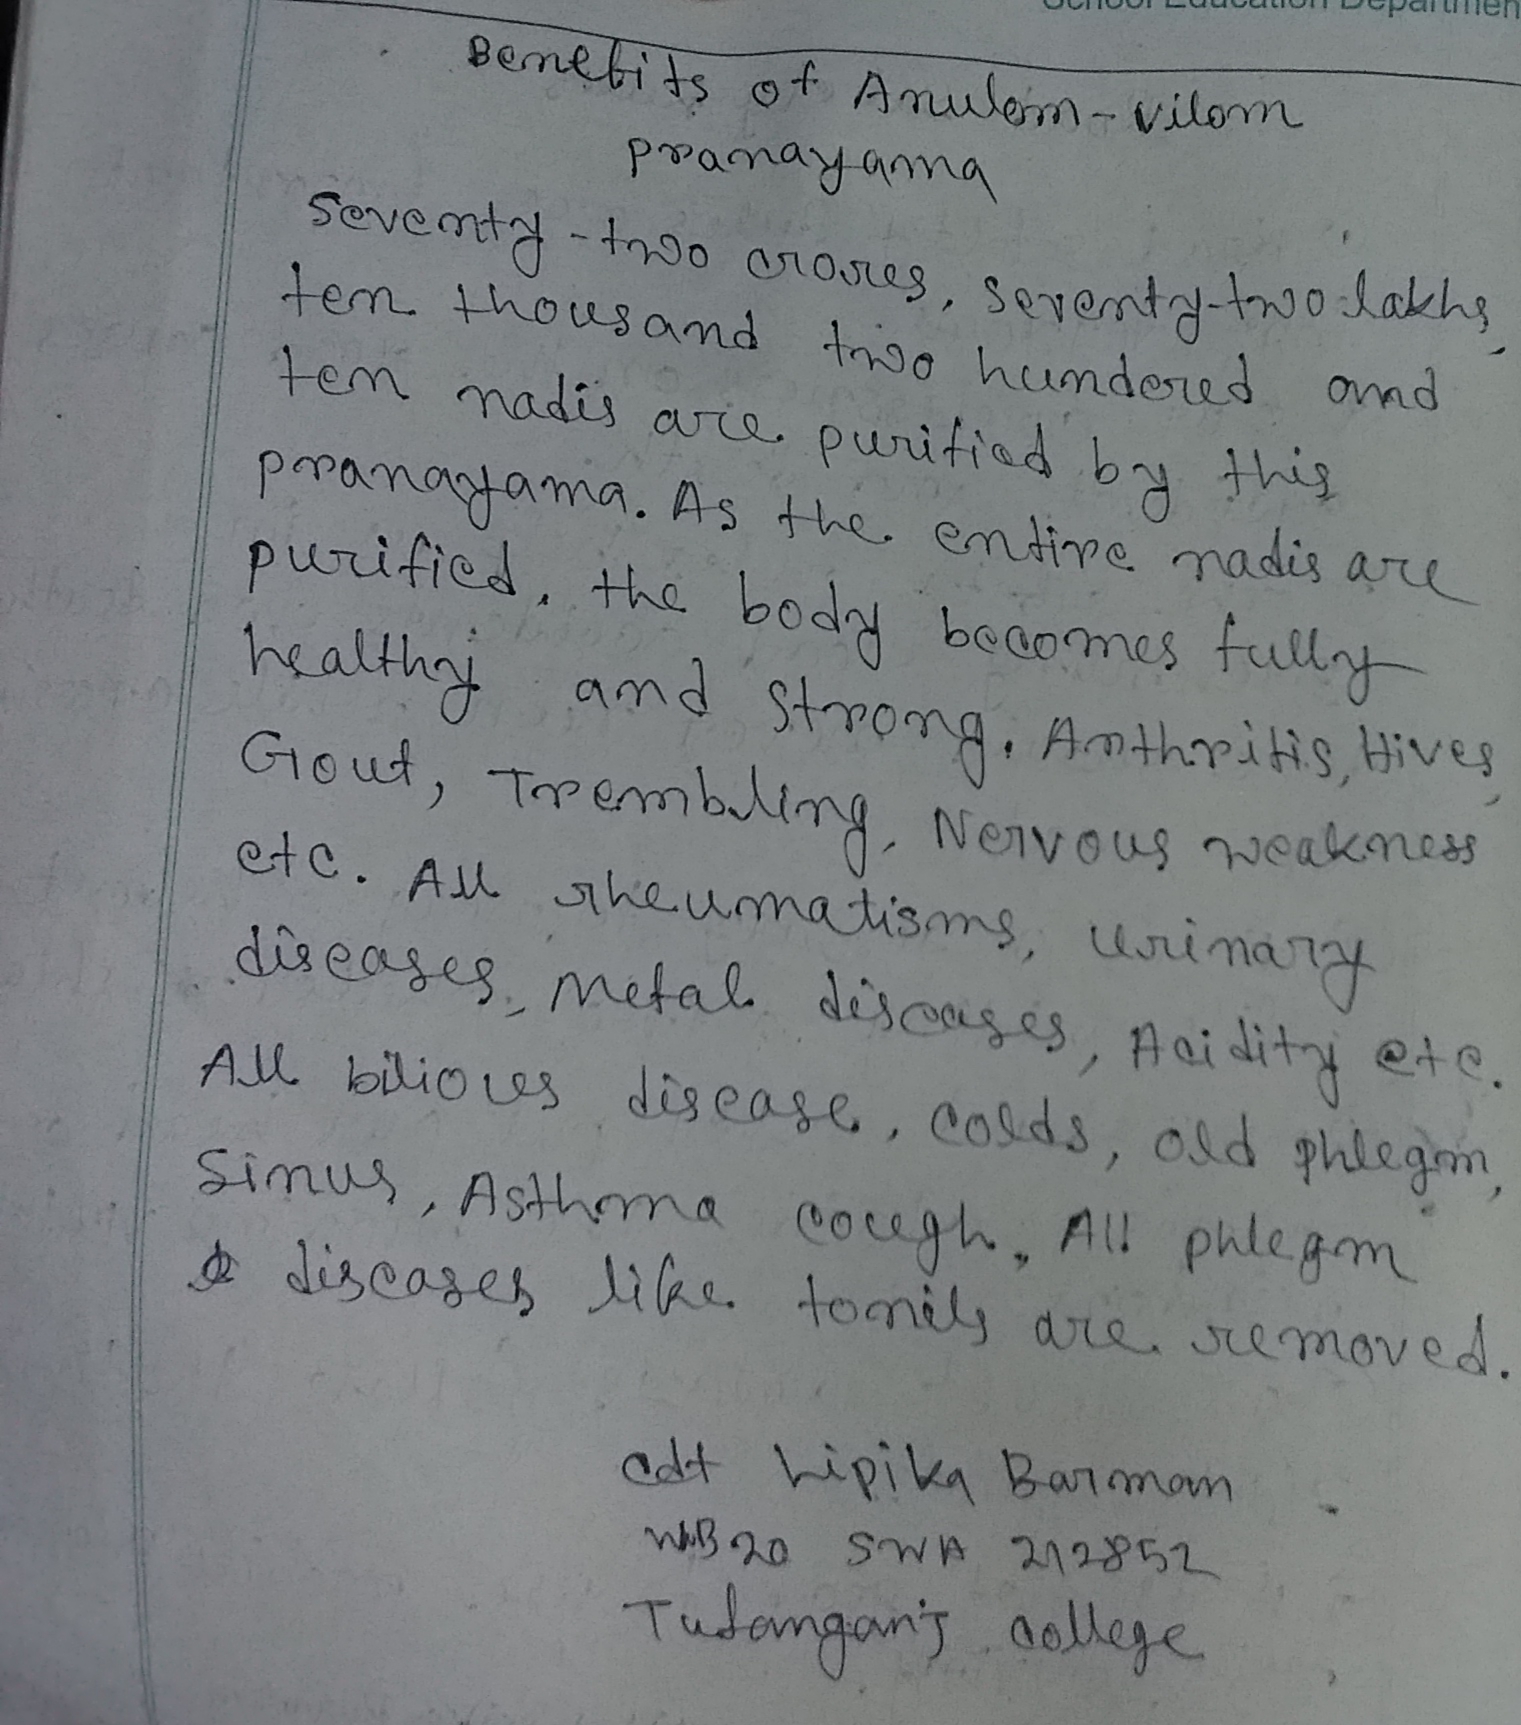 School Education Departmen
Benefits of Anulom-vilom
pranayama
Seventy-two crores, seventy-two lakhs,
ten thousand two hundered and
ten nadis are purified by this
pranayama. As the entire nadis are
purified, the body becomes fully
healthy and strong. Arthritis, Hives,
Gout, Trembling, Nervous weakness
etc. All rheumatisms, urinary
diseases, Metal diseases, Acidity etc.
All bilious disease, colds, old phlegm,
Sinus, Asthma cough, All phlegm
diseases like tonils are removed.
cdt Lipika Barman
WB20 SWA 212852
Tufanganj college